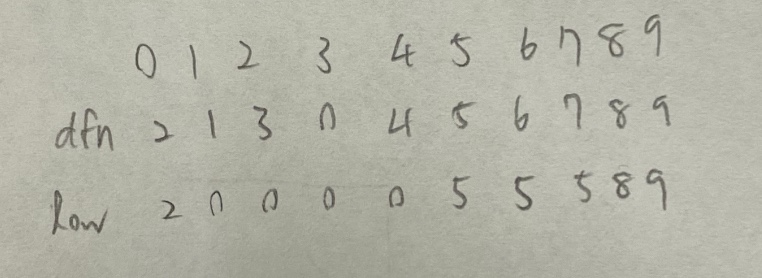 0 1 2 3 4 5 6 7 8 9
dfn 2 1 3 0 4 5 6 7 8 9
low 2 0 0 0 0 5 5 5 8 9